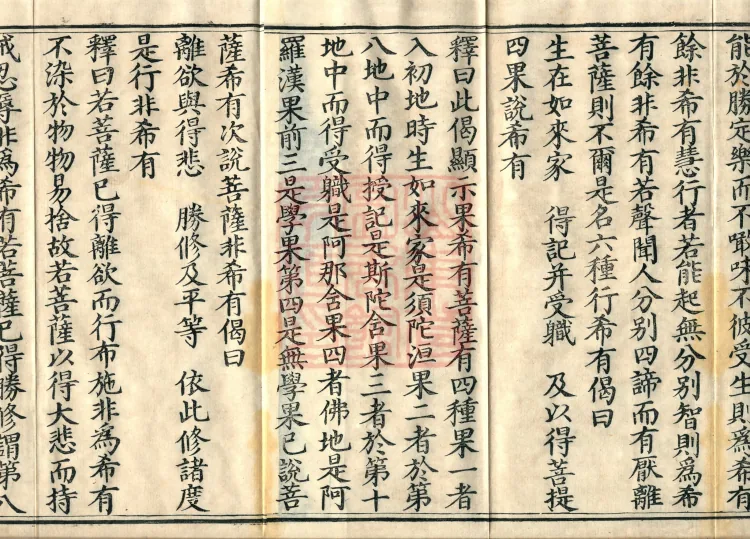 能於勝定樂而不敢味不倾受生則爲希有
餘非希有慧行者若能起無分別智則爲希
有餘非希有若聲聞人分別四諦而有厭離
菩薩則不爾是名六種行希有偈曰
生在如來家　得記并受職　及以得菩提
四果說希有
釋曰此偈顯示果希有菩薩有四種果一者
入初地時生如來家是須陀洹果二者於第
八地中而得授記是斯陀含果三者於第十
地中而得受職是阿那含果四者佛地是阿
羅漢果前三是學果第四是無學果已說菩
薩希有次說菩薩非希有偈曰
離欲與得悲　勝修及平等　依此修諸度
是行非希有
釋曰若菩薩已得離欲而行布施非爲希有
不染於物物易捨故若菩薩以得大悲而持
戒忍辱非爲希有若菩薩已得勝修謂第八